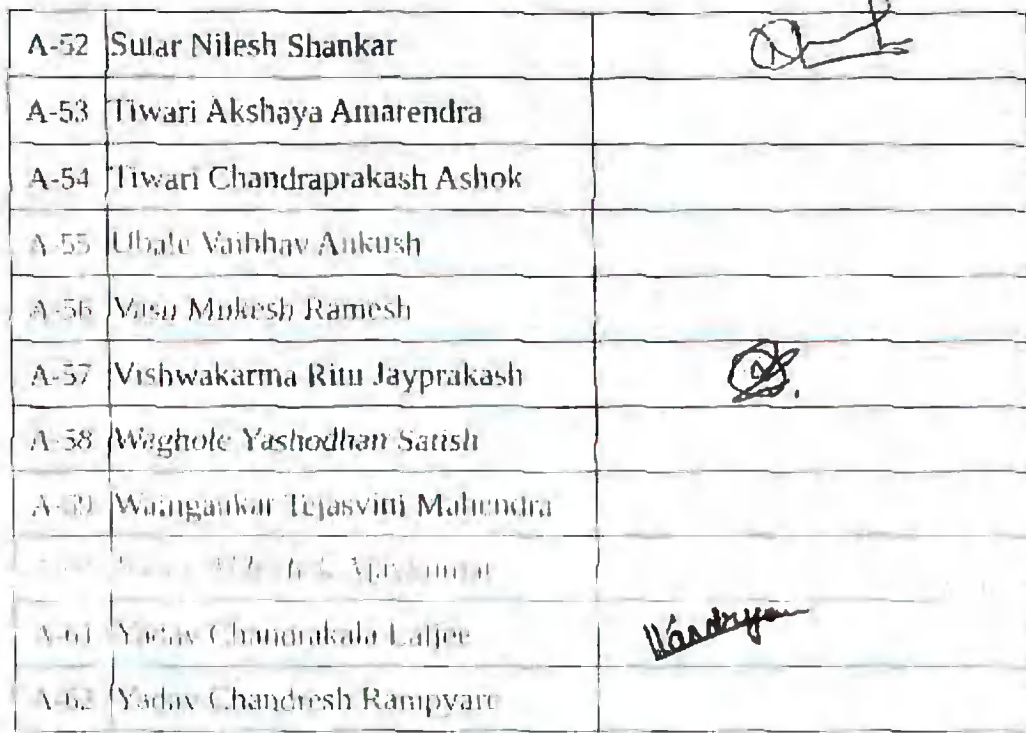 A-52 Sutar Nilesh Shankar
A-53 Tiwari Akshaya Amarendra
A-54 Tiwari Chandraprakash Ashok
A-55 Ubale Vaibhav Ankush
A-56 Mukesh Ramesh
A-57 Vishwakarma Ritu Jayprakash
A-58 Waghole Yashodhan Satish
A-59 Waingankar Tejasvini Mahendra
A-61 Yadav Chandrakala Laljee
A-62 Yadav Chandresh Rampyare